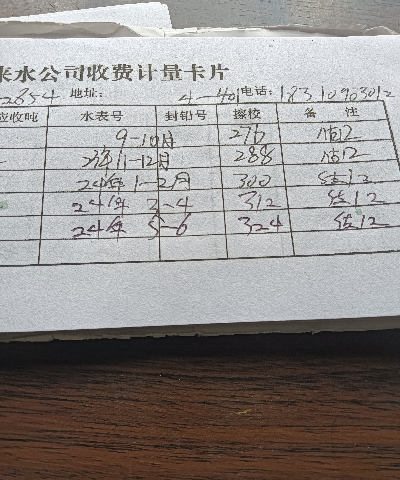 来水公司收费计量卡片
2854 地址: 4-401 电话: 18310903012
应收吨 水表号 封铅号 擦校 备 注
9-10月 276 估12
23年11-12月 288 估12
24年 1-2月 300 估12
24年 2-4 312 估12
24年 5-6 324 估12